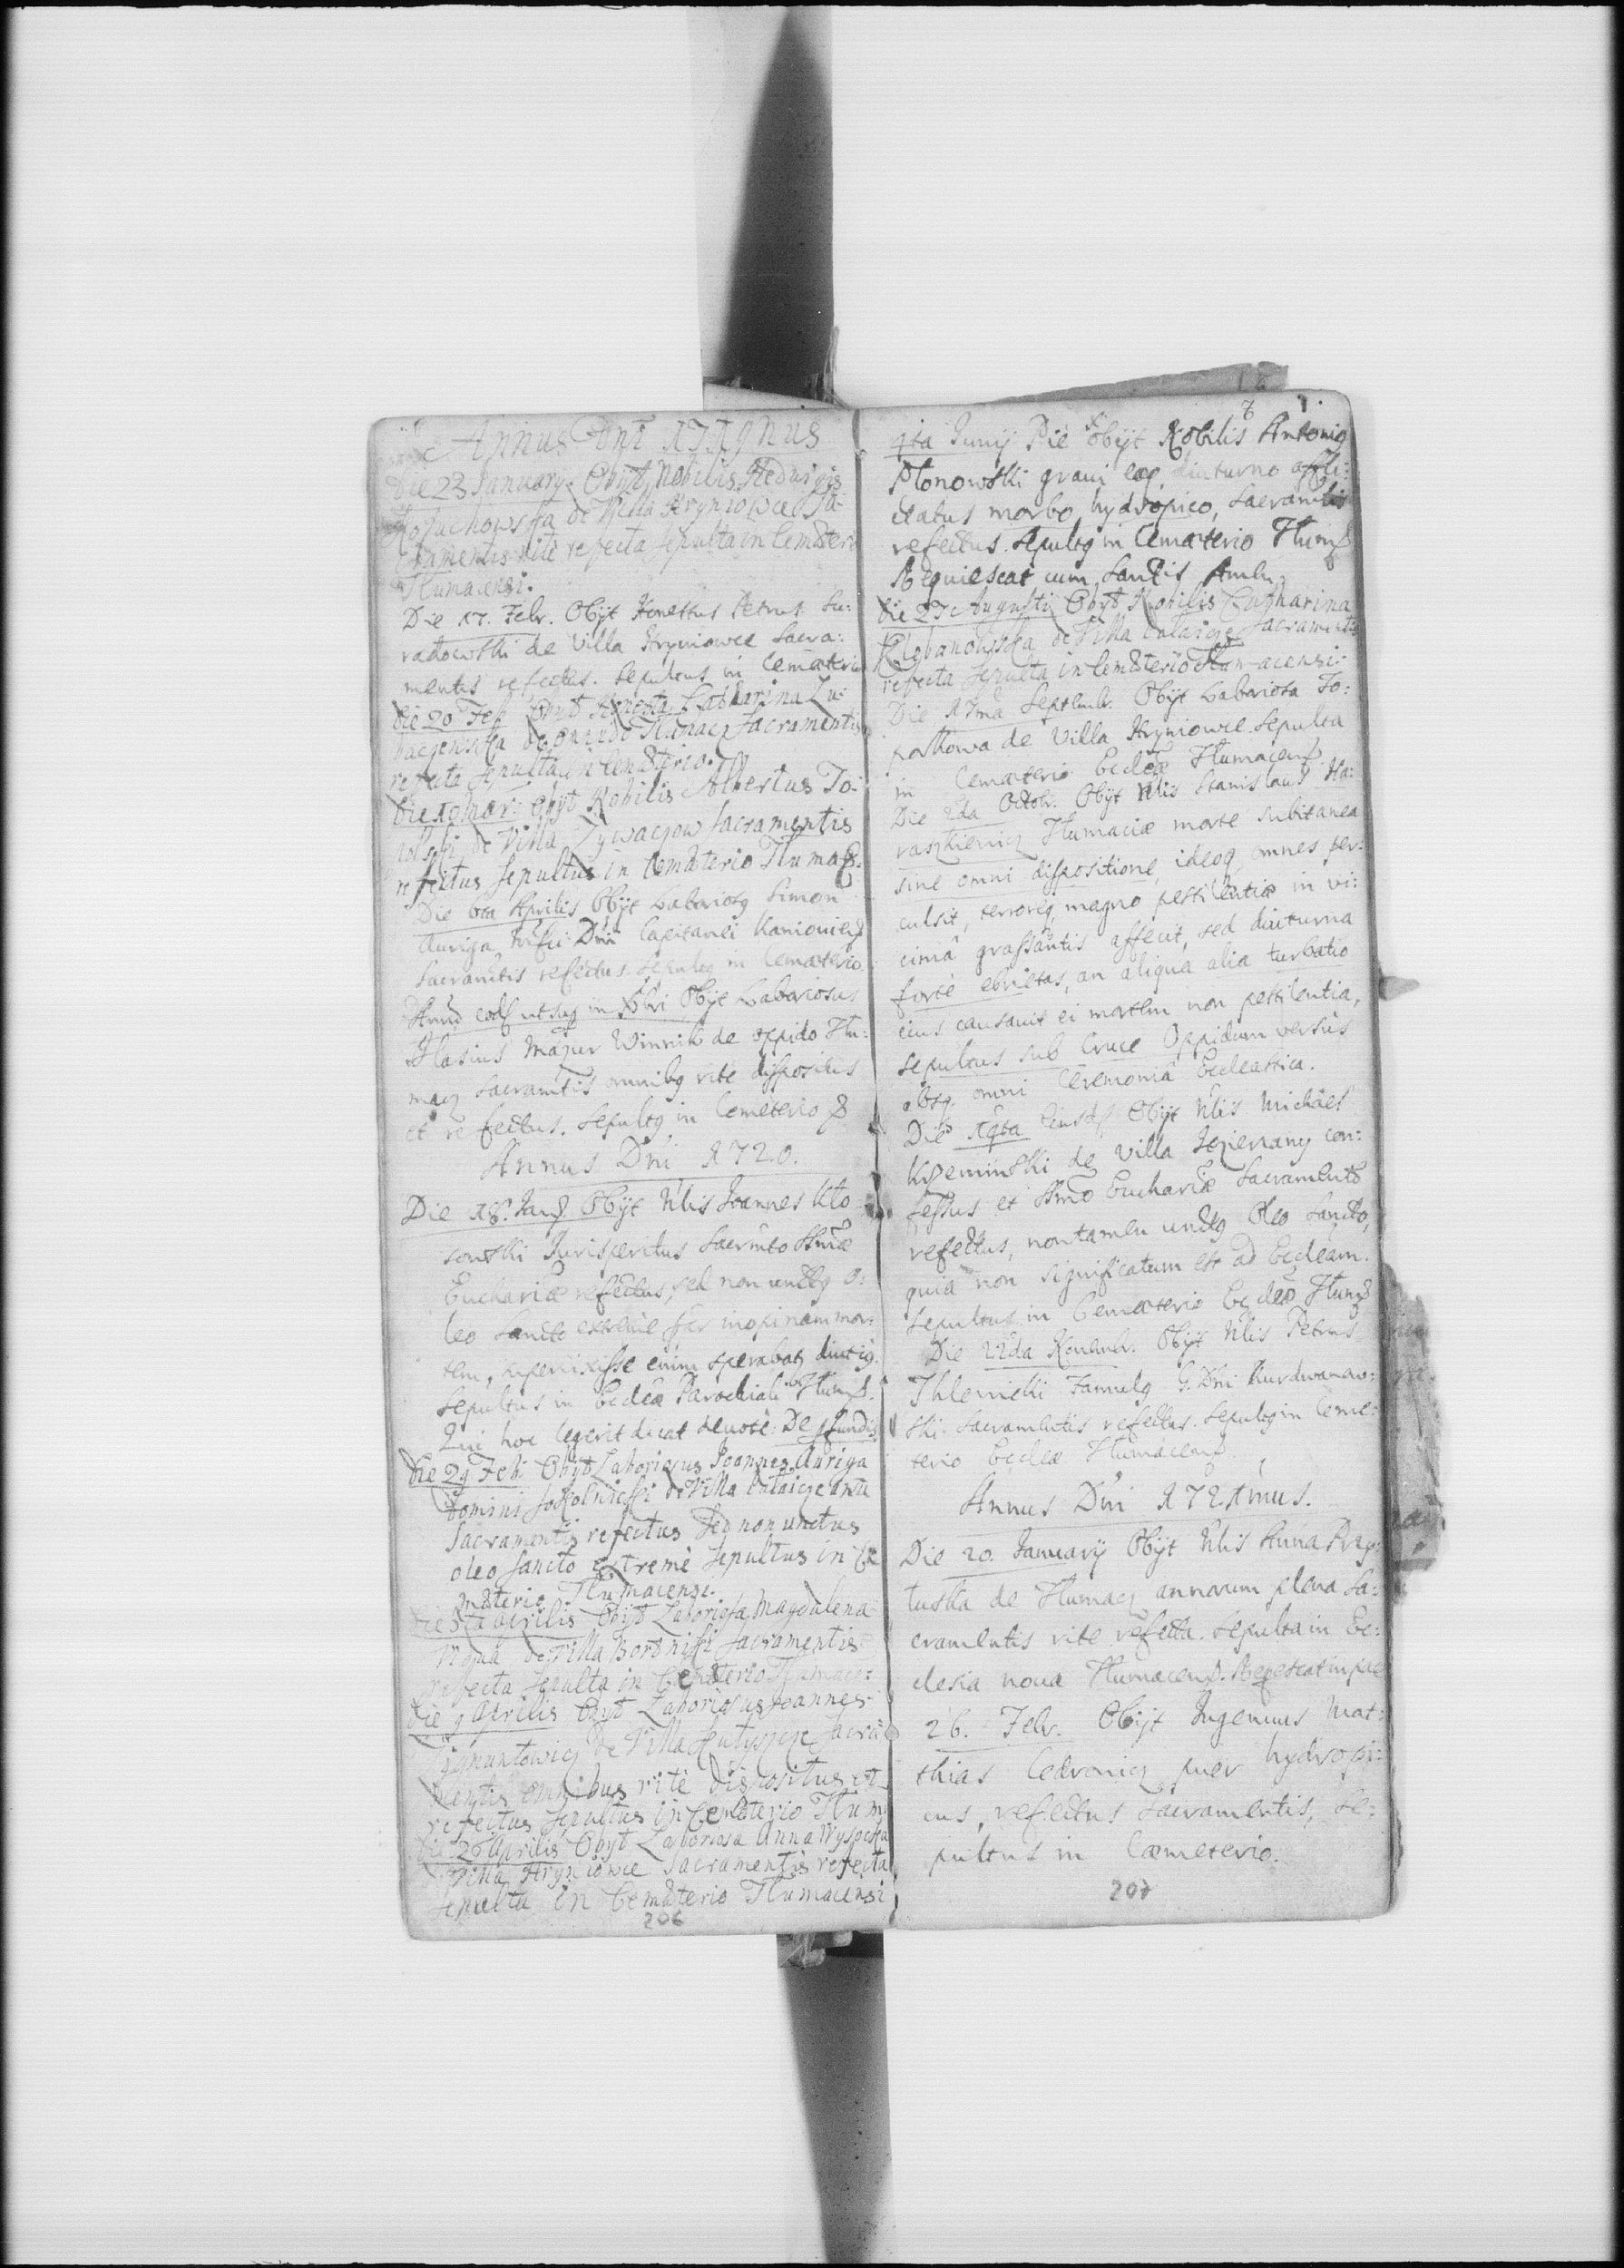 Annus Dni 1719nus
Die 23 January. Obijt Nobilis Heduigis
de Villa Hryniowce Sa-
cramentis rite refecta sepulta in Cemæterio
Tlumacensi.
Die 17. Febr. Obijt Honestus Petrus Su:
ratowski de Villa Hryniowce Sacra:
mentis refectus. Sepultus in Cemæterio
Die 20 Feb Obijt Honesta Catharina Zu-
de Tłumacz Sacramentis
refecta Sepulta in Cemæterio.
Die 10 Mar: Obijt Nobilis Albertus To-
de Villa Zywaczow Sacramentis
refectus Sepultus in Cemæterio Tłumac.
Die 6ta Aprilis Obijt Laboriosq Simon
Auriga Dni Capitanei Kaniouien
Sacramtis refectus Sepultq in Cemæterio
Obijt Laboriosus
Blasius Winnik de oppido Tłu:
macz Sacramtis omnibq rité dispositus
et refectus. Sepultq in Cemeterio
Annus Dni 1720.
Die 18. Jan. Obijt Nlis Joannes Kło-
sowski Jurisperitus Sacrmto Ssmæ
Euchariæ refectus, sed non unctq O:
leo Sancto extremè per inopinam mor:
tem, supervixisse enim sperabatq diutiq.
Sepultus in Ecclæ Parochiali Tłum.
Qui hoc legerit dicat devotè: De pfundis.
Die 29 Feb: Obijt Laboriosus Joannes Auriga
Domini Sokolnicki de Villa
Sacramentis refectus Sed non unctus
oleo Sancto extremè Sepultus in Ce
mæterio Tłumacensi.
Die 5ta Aprilis Obijt Laboriosa Magdalena
de Villa Bortniki Sacramentis
refecta Sepulta in Cemæterio Tłumace:
Die 9 Aprilis Obijt Laboriosus Joannes
de Villa Sacra:
mentis omnibus ritè dispositus et
refectus Sepultus in Cemæterio Tłum
Die 26 Aprilis Obijt Laboriosa Anna
Villa Hryniowce Sacramentis refecta
Sepulta in Cemæterio Tłumacensi
206
7
4ta Junij Die Obijt Nobilis Antoniq
Płonowski graui eoq diuturno affli:
ctatus morbo hydropico, Sacramtis
refectus. Sepultq in Cemæterio Tłum
Requiescat cum Sanctis Amen.
Die 27 Augusti Obijt Nobilis Catharina
de Villa Sacramentis
refecta Sepulta in Cemæterio Tłumacensi.
Die 17ma Septemb. Obijt Laboriosa To:
porkowa de Villa Hryniowce. Sepulta
in Cemæterio Ecclæ Tłumacens.
Die 2da Octobr. Obijt Nlis Stanislaus Ha:
raszkiewicz Tłumaciæ morte subitanea
sine omni dispositione, ideoq omnes per:
culsit, terroreq, magno pestilentiæ in vi:
cinia grassantis affecit, sed diuturna
fortè ebrietas, an aliqua alia turbatio
eius causauit ei mortem non pestilentia,
sepultus sub Cruce Oppidum versùs
absq. omni Ceremonia Eccleastica.
Die 14ta Eiusd Obijt Nlis Michael
Krzeminski de Villa Jezierzany con:
fessus et Ssmo Euchariæ Sacramento
refectus, non tamen unctq Oleo Sancto,
quia non significatum est ad Eccleam.
Sepultus in Cemæterio Ecclæ Tłum
Die 22da Nouemb. Obijt Nlis Petrus
Ihlenicki Famulq G. Dni Kurdwanow:
ski. Sacramentis refectus. Sepultq in Ceme:
terio Ecclæ Tłumacens.
Annus Dni 1721mus.
Die 20. January Obijt Nlis Anna
tuska de Tłumacz annorum plena Sa:
cramentis rite refecta. Sepulta in Ec:
clesia noua Tłumacens. Reqescat in pace
26. Febr. Obijt Ingenuus Mat:
thias Cedrowicz puer hydropi:
cus, refectus Sacramentis, se:
pultus in Cæmeterio.
207